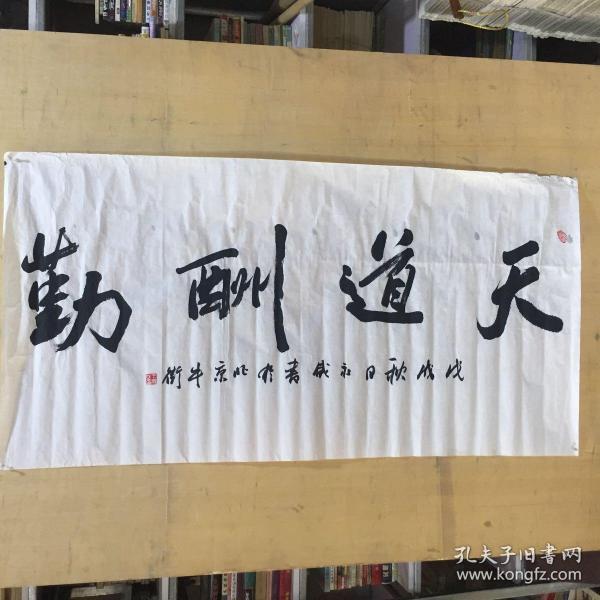 天道酬勤
戊戌秋日永成書於北京牛街
孔夫子旧書网
www.kongfz.com